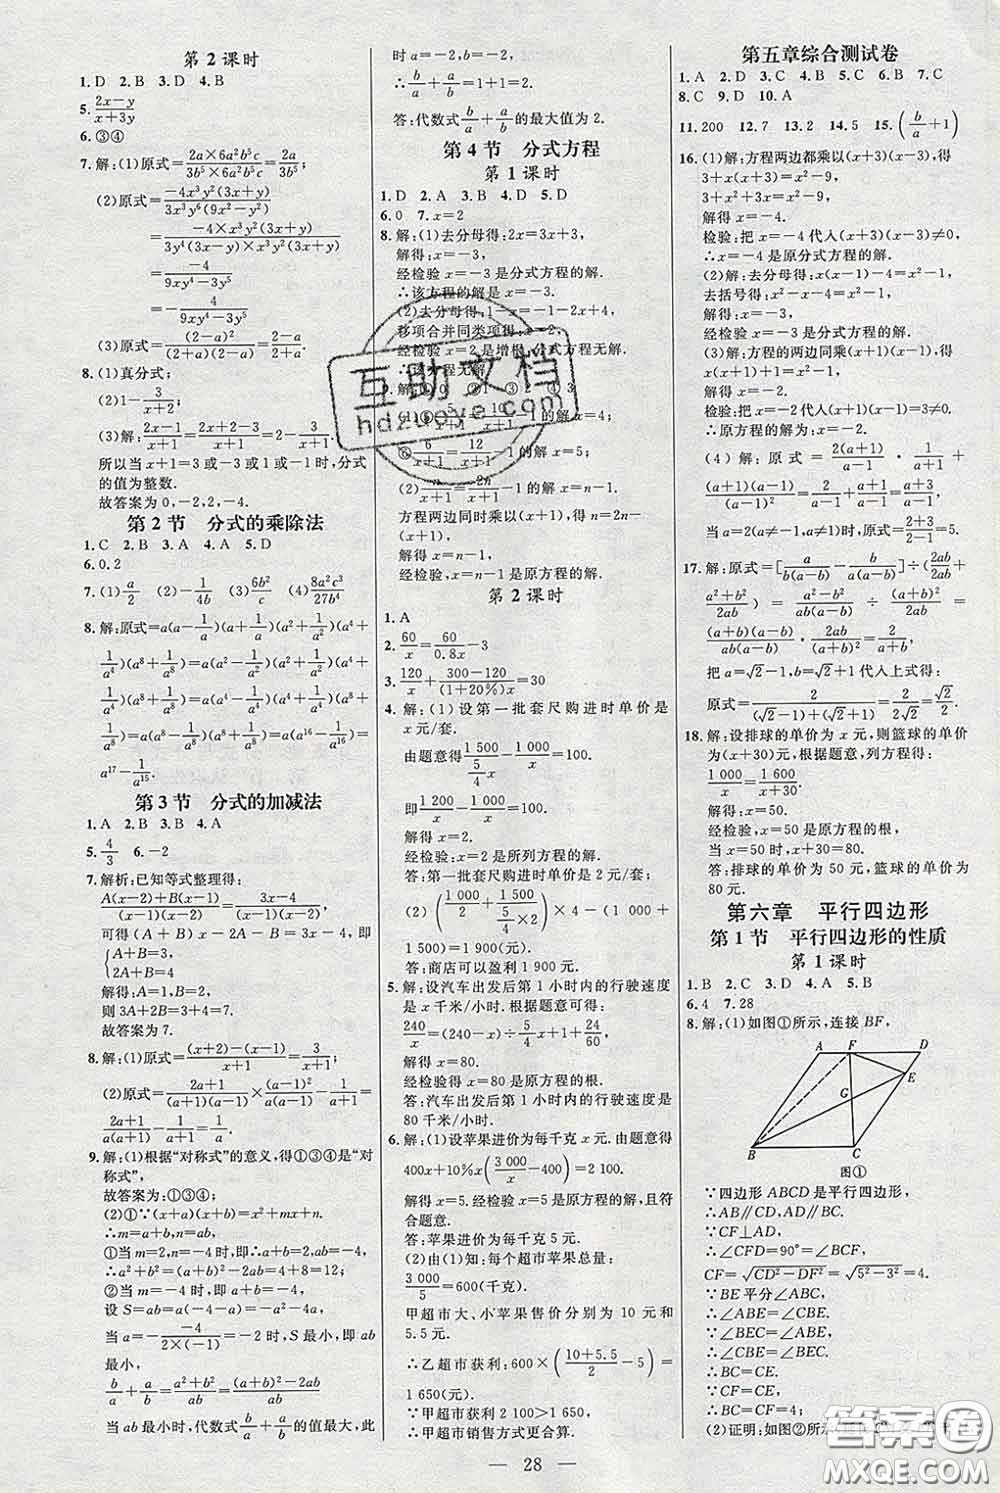 第2课时
1.D 2.B 3.D 4.B
5.(2x-y)/(x+3y)
6.③④
7.解:(1)原式=(2a×6a²b⁵c)/(3b⁵×6a²b⁵c)=2a/3b⁵;
(2)原式=(-4x³y²(3x+y))/(3x³y⁶(9x²-y²))
=(-4×x³y²(3x+y))/(3y⁴(3x-y)×x³y²(3x+y))
=-4/(9xy⁴-3y⁵)
=-4/(9xy⁴-3y⁵)
(3)原式=(2-a)²/((2+a)(2-a))=(2-a)/(2+a).
8.(1)真分式;
(2)1-3/(x+2);
(3)解:(2x-1)/(x+1)=(2x+2-3)/(x+1)=2-3/(x+1),
所以当x+1=3或-3或1或-1时,分式
的值为整数.
故答案为0,-2,2,-4.
第2节 分式的乘除法
1.C 2.B 3.A 4.A 5.D
6.0.2
7.(1)a/2 (2)-1/4b (3)6b²/c (4)8a²c³/27b⁴
8.解:原式=a(a-1/a)(a+1/a)(a²+1/a²)(a⁴+
1/a⁴)(a⁸+1/a⁸)=a(a²-1/a²)(a²+1/a²)(a⁴+
1/a⁴)(a⁸+1/a⁸)=a(a⁴-1/a⁴)(a⁴+1/a⁴)(a⁸+
1/a⁸)=a(a⁸-1/a⁸)(a⁸+1/a⁸)=a(a¹⁶-1/a¹⁶)=
a¹⁷-1/a¹⁵.
第3节 分式的加减法
1.A 2.B 3.B 4.A
5.4/3 6.-2
7.解析:已知等式整理得:
(A(x-2)+B(x-1))/((x-1)(x-2))=(3x-4)/((x-1)(x-2)),
可得(A+B)x-2A-B=3x-4,
即{A+B=3
2A+B=4,
解得:A=1,B=2,
则3A+2B=3+4=7.
故答案为7.
8.解:(1)原式=((x+2)-(x-1))/(x+1)=3/(x+1);
(2)原式=(2a+1)/(a(a+1))×(a-1)²/((a+1)(a-1))=
(2a+1)/(a(a+1))-1/(a+1)=1/a.
9.解:(1)根据“对称式”的意义,得①③④是“对
称式”,
故答案为:①③④;
(2)①∵(x+a)(x+b)=x²+(a+b)x+ab
∴m=a+b,n=ab,
①当m=-2,n=-4时,即a+b=-4,ab=-4
∴a²+b²=(a+b)²-2ab=4+8=12;
②当m=-4时,即a+b=-4,
设S=ab=a(-4-a)=-a²-4a
当a=-(-4)/(2×(-1))=-2时,S最小,即ab
最小,
b/a+a/b=(a²+b²)/ab=((a+b)²-2ab)/ab=16/ab-2
当ab最小时,代数式b/a+a/b的值最大,此
时a=-2,b=-2,
∴b/a+a/b=1+1=2.
答:代数式b/a+a/b的最大值为2.
第4节 分式方程
第1课时
1.D 2.A 3.C 4.D 5.D
6.0 7.x=2
8.解:(1)去分母得:2x=3x+3,
解得:x=-3,
经检验x=-3是分式方程的解.
∴该方程的解是x=-3.
(2)去分母得:1-x=-1-2x+4,
移项合并同类项得:x=2,
经检验x=2是增根,分式方程无解.
∴该方程无解
的解x=4;
⑥6/(x+1)=12/(x+1)-1的解x=5;
(2)n/(x+1)=2n/(x+1)-1的解x=n-1.
方程两边同时乘以(x+1),得n=2n-
(x+1),
解得x=n-1,
经检验x=n-1是原方程的解
第2课时
1.A
2.60/x=60/0.8x-3
3.120/x+(300-120)/((1+20%)x)=30
4.解:(1)设第一批套尺购进时单价是
x元/套.
由题意得1 500/(5/4 x)-1 000/x=100,
即1 200/x-1 000/x=100,
解得x=2.
经检验:x=2是所列方程的解.
答:第一批套尺购进时单价是2元/套.
(2)(1 000/2+1 500/(5/4×2))×4-(1 000+
1 500)=1 900(元).
答:商店可以盈利1 900元.
5.解:设汽车出发后第1小时内的行驶速度
是x千米/小时.根据题意可得:
240/x=(240-x)÷5/4x+1+24/60
解得x=80,
经检验得x=80是原方程的根.
答:汽车出发后第1小时内的行驶速度是
80千米/小时.
6.解:(1)设苹果进价为每千克x元.由题意得
400x+10%x(3 000/x-400)=2 100,
解得x=5.经检验x=5是原方程的解,且符
合题意.
答:苹果进价为每千克5元.
(2)由(1)知:每个超市苹果总量:
3 000/5=600(千克).
甲超市大、小苹果售价分别为10元和
5.5元.
∴乙超市获利:600×((10+5.5)/2-5)=
1 650(元).
∵甲超市获利2 100>1 650,
∴甲超市销售方式更合算.
第五章综合测试卷
1.A 2.D 3.C 4.C 5.B 6.B 7.C
8.C 9.D 10.A
11.200 12.7 13.2 14.5 15.(b/a+1)
16.(1)解:方程两边都乘以(x+3)(x-3),得
3+x(x+3)=x²-9,
3+x²+3x=x²-9,
解得x=-4.
检验:把x=-4代入(x+3)(x-3)≠0,
∴x=-4是原分式方程的解.
(2)解:去分母得:x(x+2)-4=x²-1,
去括号得:x²+2x+1-4=x²-1,
解得:x=1,
经检验x=-3是分式方程的解.
(3)解:方程的两边同乘(x-1)(x+1),得
3x+3-x-3=0,
解得x=-2.
检验:把x=-2代入(x-1)(x+1)=3≠0.
∴原方程的解为:x=-2.
(4)解:原式=2(a+1)/(a-1)·
(a+1)(a-1)/(a+1)-(a+1)/(a-1)=(a+3)/(a-1),
当a=2(a≠-1,a≠1)时,原式=(2+3)/(2-1)=5.
17.解:原式=[a/(b(a-b))-b/(a(a-b))]÷(2ab/2ab+
(a²+b²)/2ab)=(a²-b²)/(ab(a-b))÷(a+b)²/2ab=
(a+b)(a-b)/(ab(a-b))·2ab/(a+b)²=2/(a+b),
把a=√2-1,b=√2+1代入上式得:
原式=2/((√2-1)+(√2+1))=2/2√2=√2/2.
18.解:设排球的单价为x元,则篮球的单价
为(x+30)元,根据题意,列方程得:
1 000/x=1 600/(x+30).
解得:x=50.
经检验,x=50是原方程的根,
当x=50时,x+30=80.
答:排球的单价为50元,篮球的单价为
80元.
第六章 平行四边形
第1节 平行四边形的性质
第1课时
1.B 2.C 3.D 4.A 5.B
6.4 7.28
8.解:(1)如图①所示,连接BF,
A F D
E
G
B C
图①
∵四边形ABCD是平行四边形,
∴AB∥CD,AD∥BC,
∵CF⊥AD,
∴∠CFD=90°=∠BCF,
CF=√(CD²-DF²)=√(5²-3²)=4.
∵BE平分∠ABC,
∴∠ABE=∠CBE.
∵∠BEC=∠ABE,
∴∠BEC=∠CBE.
∴BC=CE.
∵CF=CE,
∴BC=CF=4;
(2)证明:如图②所示
28
互助文档
hdzuoye.com
答案圈
MXQE.COM